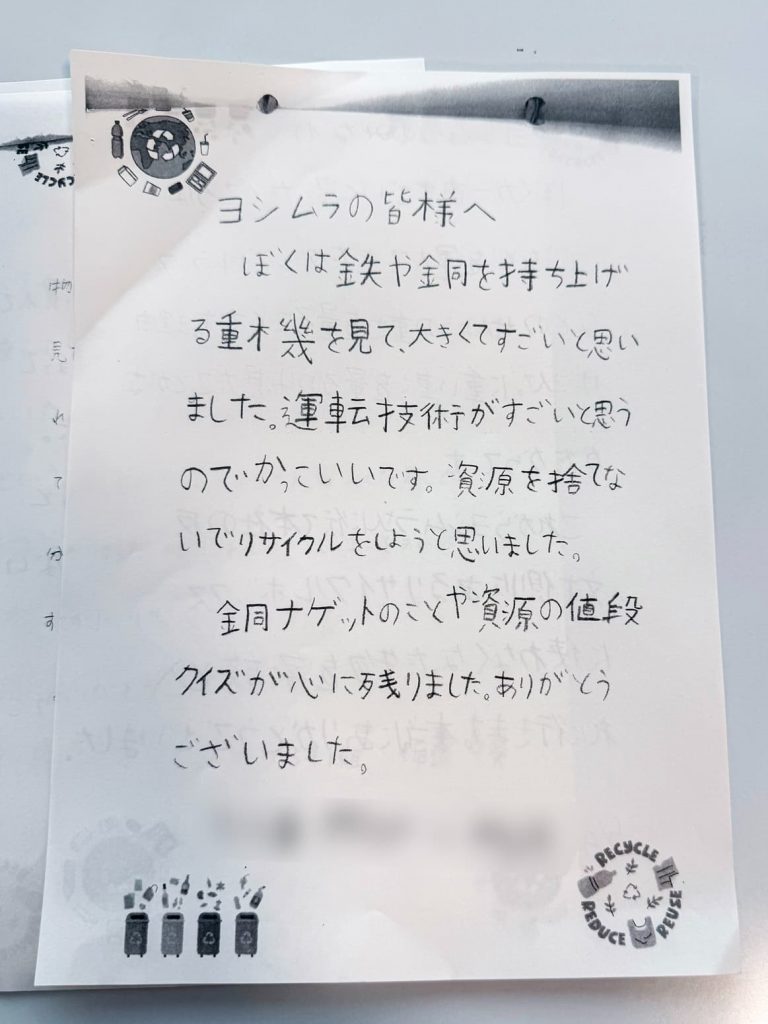 ヨシムラの皆様へ
ぼくは鉄や銅を持ち上げ
る重木幾を見て、大きくてすごいと思い
ました。運転技術がすごいと思う
のでかっこいいです。資源を捨てな
いでリサイクルをしようと思いました。
銅ナゲットのことや資源の値段
クイズが心に残りました。ありがとう
ございました。
RECYCLE
REDUCE
REUSE
RECYCLE
見
れ
て
分
す